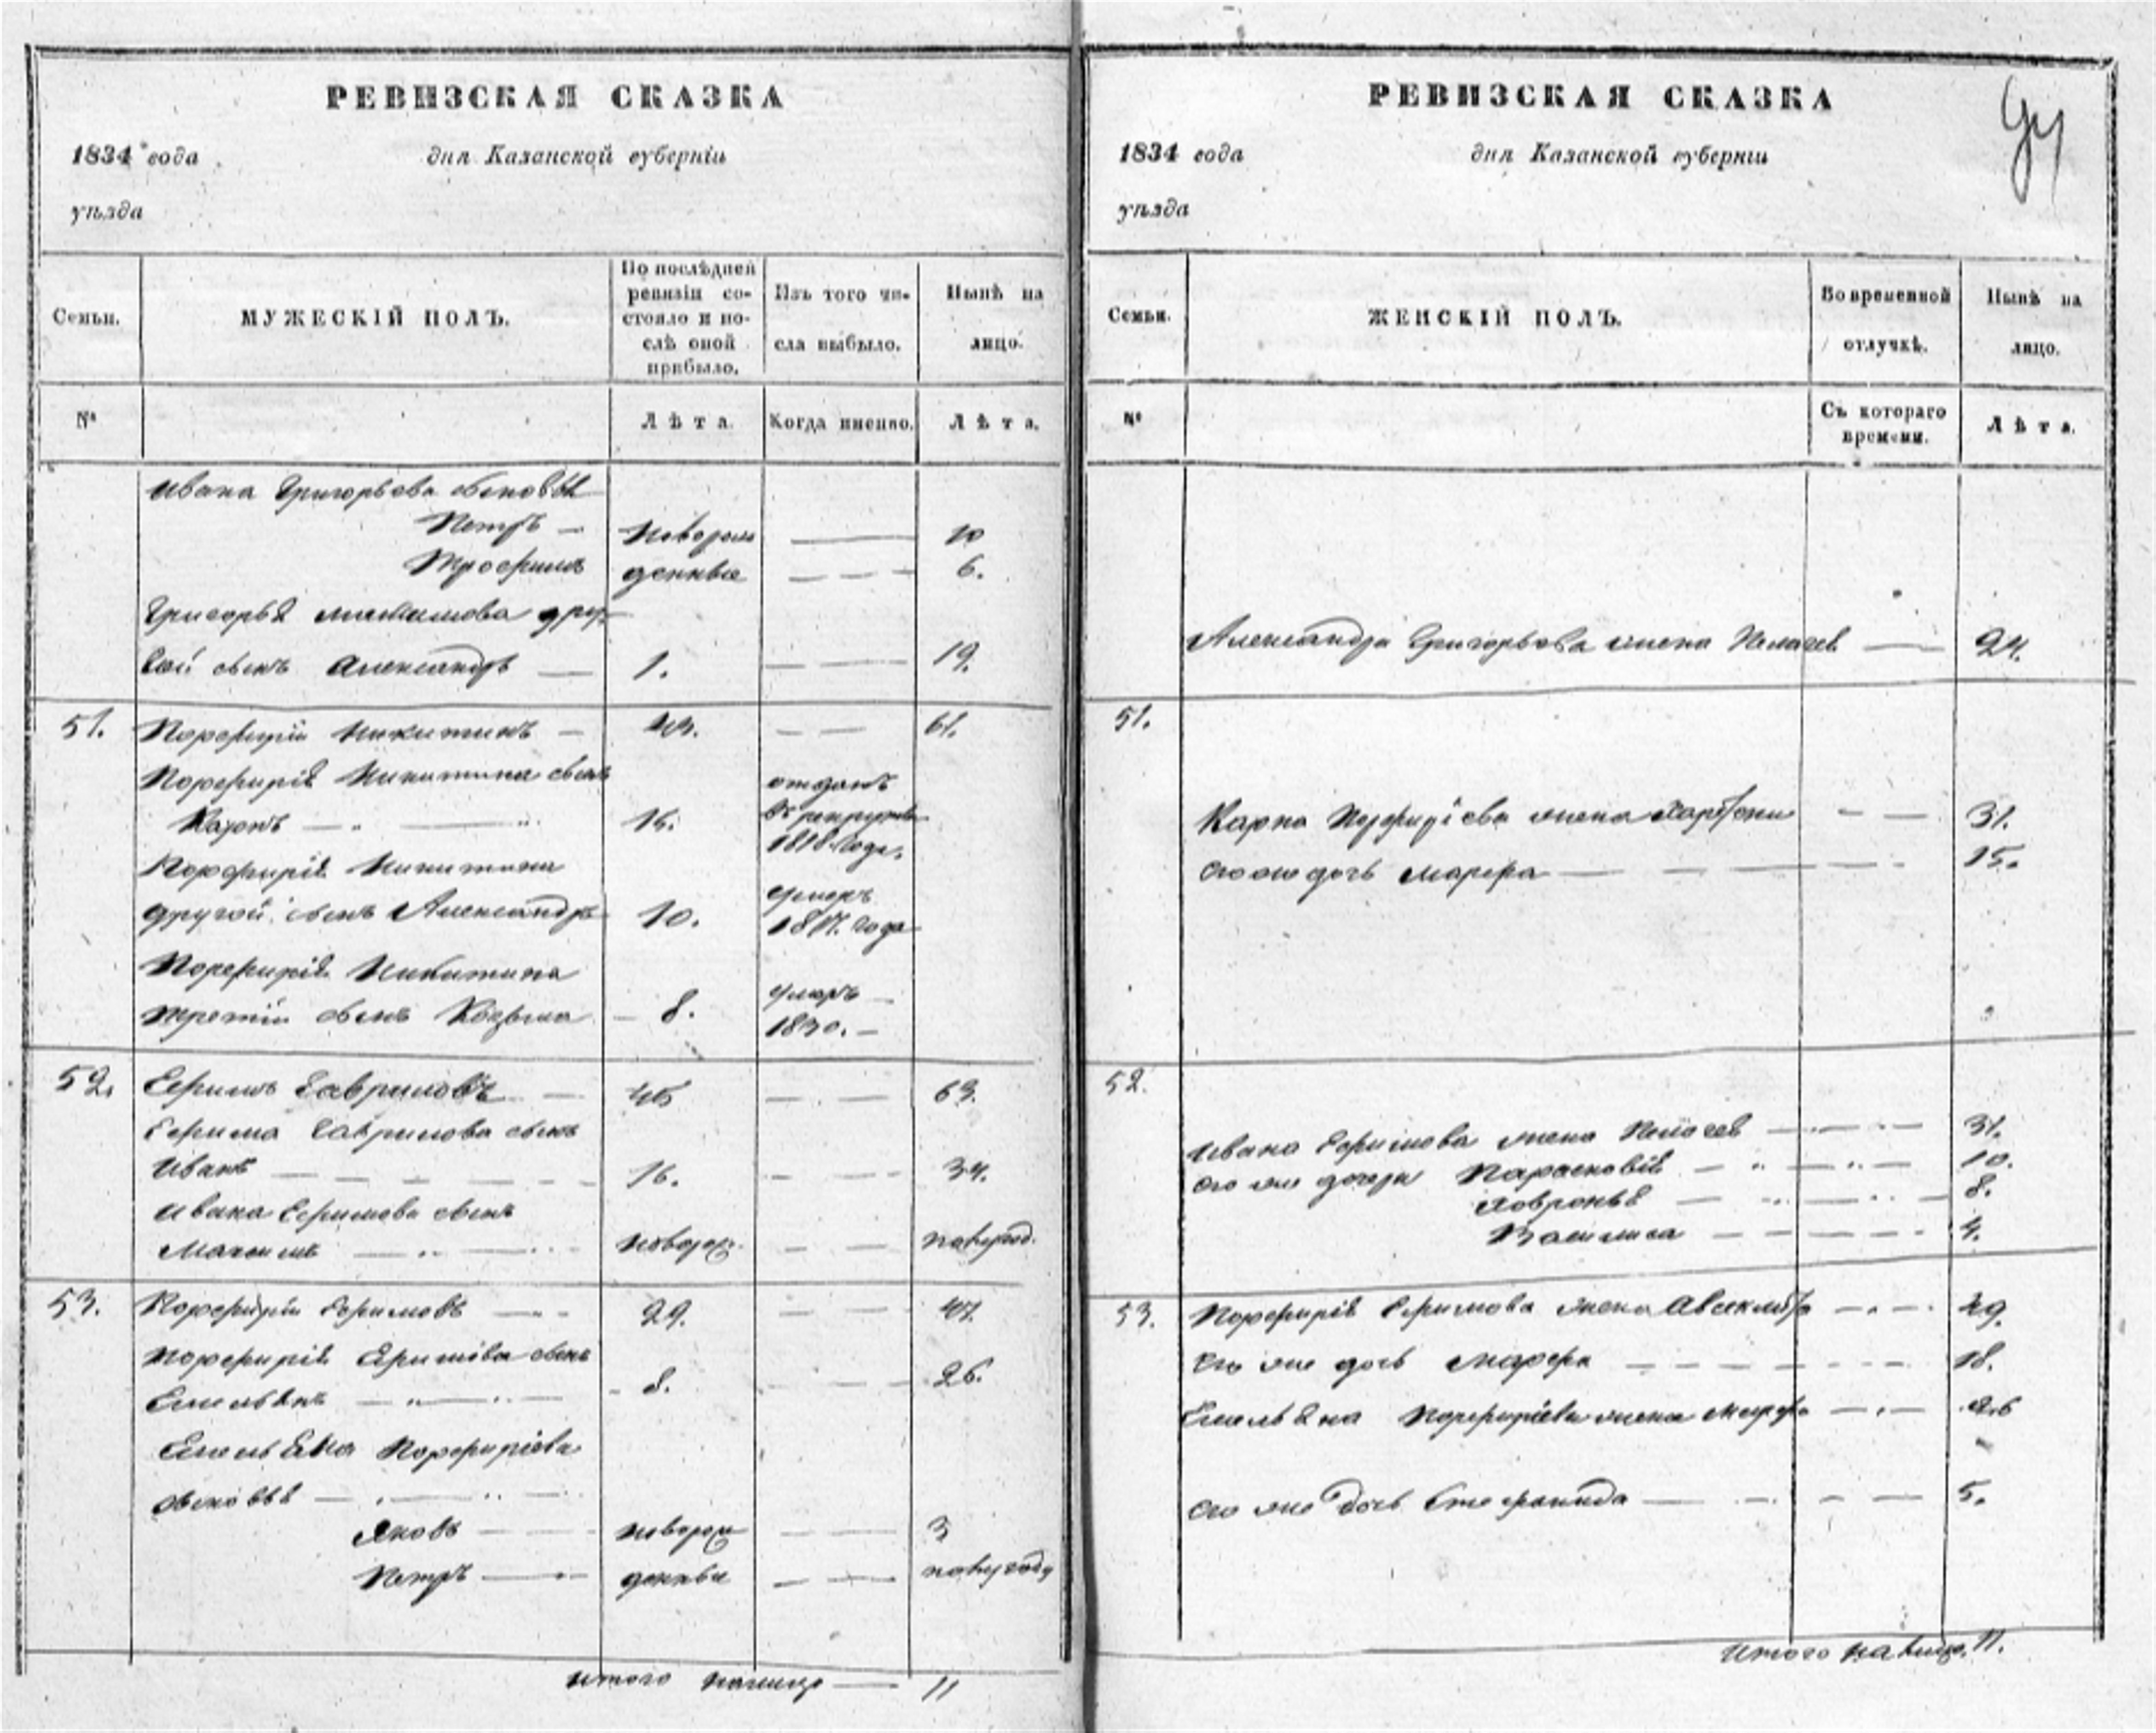 РЕВИЗСКАЯ СКАЗКА
1834 года
дня Казанской губерніи
уѣзда
Семьи.
МУЖЕСКІЙ ПОЛЪ.
По послѣдней
ревизіи со-
стояло и по-
слѣ оной
прибыло.
Изъ того чи-
сла выбыло.
Нынѣ на
лицо.
№
Лѣта.
Когда именно.
Лѣта.
Ивана Григорьева сыновья
Петръ — Новорож — 10
Трофимъ денные — 6.
Григорья другой
сынъ Александръ — 1. — 19.
51. Порфирій Никитинъ — 43. — 61.
Порфирія Никитина сынъ отданъ
Карпъ — 16. въ рекруты
1818 года.
Порфирія Никитина умеръ
другой сынъ Александръ 10. года
Порфирія Никитина умеръ —
третій сынъ Козьма — 8. 1830. —
52. Ефимъ Гавриловъ — 45 — 63.
Ефима Гаврилова сынъ
Иванъ — 16. — 34.
Ивана Ефимова сынъ
Максимъ — новорож. — полугод.
53. Порфирій Ефимовъ — 29. — 47.
Порфирія Ефимова сынъ
Емельянъ — 8. — 26.
Емельяна Порфиріева
сыновья —
Яковъ — новорож — 3
Петръ — денные — полугоду
Итого налицо — 11
РЕВИЗСКАЯ СКАЗКА
1834 года
дня Казанской губерніи
уѣзда
Семьи.
ЖЕНСКІЙ ПОЛЪ.
Во временной
отлучкѣ.
Нынѣ на
лицо.
№
Съ котораго
времени.
Лѣта.
Александра Григорьева жена Пелагея — 24.
51.
Карпа Порфиріева жена — 31.
его же дочь Марфа — 15.
52.
Ивана Ефимова жена Пелагея — 31.
его же дочери Парасковія — 10.
Ховронья — 8.
Василиса — 4.
53. Порфирія Ефимова жена — 49.
его же дочь Марфа — 18.
Емельяна Порфиріева жена Марфа — 26
его же дочь Стефанида — 5.
Итого налицо 11.